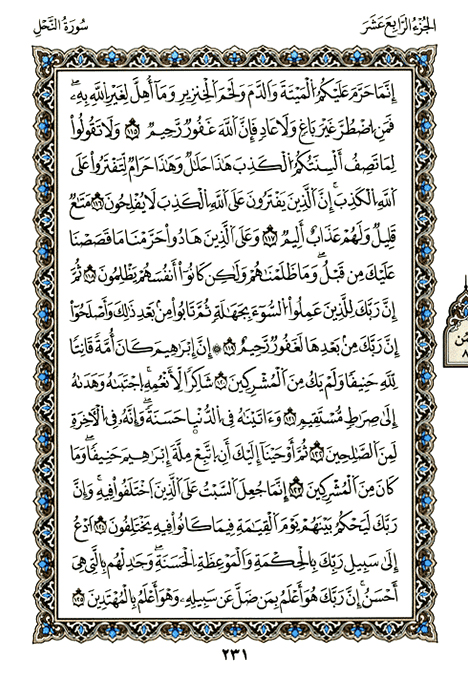 الجزء الرابع عشر
سورة النحل
إِنَّمَا حَرَّمَ عَلَيْكُمُ الْمَيْتَةَ وَالدَّمَ وَلَحْمَ الْخِنزِيرِ وَمَا أُهِلَّ لِغَيْرِ اللَّهِ بِهِ
فَمَنِ اضْطُرَّ غَيْرَ بَاغٍ وَلَا عَادٍ فَإِنَّ اللَّهَ غَفُورٌ رَّحِيمٌ ١١٥ وَلَا تَقُولُوا
لِمَا تَصِفُ أَلْسِنَتُكُمُ الْكَذِبَ هَٰذَا حَلَالٌ وَهَٰذَا حَرَامٌ لِّتَفْتَرُوا عَلَى
اللَّهِ الْكَذِبَ إِنَّ الَّذِينَ يَفْتَرُونَ عَلَى اللَّهِ الْكَذِبَ لَا يُفْلِحُونَ ١١٦ مَتَاعٌ
قَلِيلٌ وَلَهُمْ عَذَابٌ أَلِيمٌ ١١٧ وَعَلَى الَّذِينَ هَادُوا حَرَّمْنَا مَا قَصَصْنَا
عَلَيْكَ مِن قَبْلُ وَمَا ظَلَمْنَاهُمْ وَلَٰكِن كَانُوا أَنفُسَهُمْ يَظْلِمُونَ ١١٨ ثُمَّ
إِنَّ رَبَّكَ لِلَّذِينَ عَمِلُوا السُّوءَ بِجَهَالَةٍ ثُمَّ تَابُوا مِن بَعْدِ ذَٰلِكَ وَأَصْلَحُوا
إِنَّ رَبَّكَ مِن بَعْدِهَا لَغَفُورٌ رَّحِيمٌ ١١٩ ۞ إِنَّ إِبْرَاهِيمَ كَانَ أُمَّةً قَانِتًا
لِّلَّهِ حَنِيفًا وَلَمْ يَكُ مِنَ الْمُشْرِكِينَ ١٢٠ شَاكِرًا لِّأَنْعُمِهِ اجْتَبَاهُ وَهَدَاهُ
إِلَىٰ صِرَاطٍ مُّسْتَقِيمٍ ١٢١ وَآتَيْنَاهُ فِي الدُّنْيَا حَسَنَةً وَإِنَّهُ فِي الْآخِرَةِ
لَمِنَ الصَّالِحِينَ ١٢٢ ثُمَّ أَوْحَيْنَا إِلَيْكَ أَنِ اتَّبِعْ مِلَّةَ إِبْرَاهِيمَ حَنِيفًا وَمَا
كَانَ مِنَ الْمُشْرِكِينَ ١٢٣ إِنَّمَا جُعِلَ السَّبْتُ عَلَى الَّذِينَ اخْتَلَفُوا فِيهِ وَإِنَّ
رَبَّكَ لَيَحْكُمُ بَيْنَهُمْ يَوْمَ الْقِيَامَةِ فِيمَا كَانُوا فِيهِ يَخْتَلِفُونَ ١٢٤ ادْعُ
إِلَىٰ سَبِيلِ رَبِّكَ بِالْحِكْمَةِ وَالْمَوْعِظَةِ الْحَسَنَةِ وَجَادِلْهُم بِالَّتِي هِيَ
أَحْسَنُ إِنَّ رَبَّكَ هُوَ أَعْلَمُ بِمَن ضَلَّ عَن سَبِيلِهِ وَهُوَ أَعْلَمُ بِالْمُهْتَدِينَ ١٢٥
٢٣١